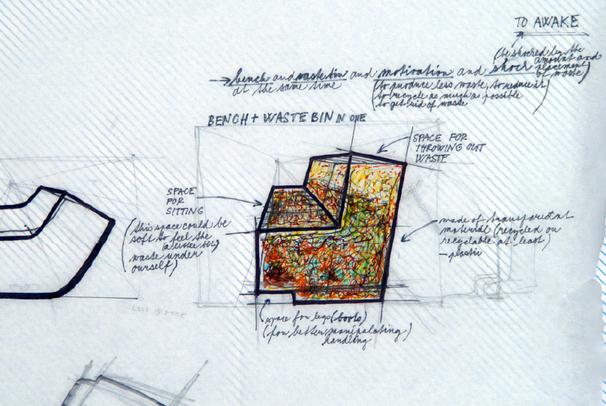 TO AWAKE
(to be shocked by the
amount and
placement
of waste)
→ bench and waste bin and motivation and shock
at the same time
(to produce less waste, to reduce it)
to recycle as much as possible
to get rid of waste
BENCH + WASTE BIN IN ONE
SPACE FOR
THROWING OUT
WASTE
SPACE
FOR
SITTING
(this space could be
soft to feel the
waste under
ourself)
made of transparent
material (recycled or
recyclable at least)
- plastic
space for legs (boots)
(for better manipulating)
handling
LESS IS MORE